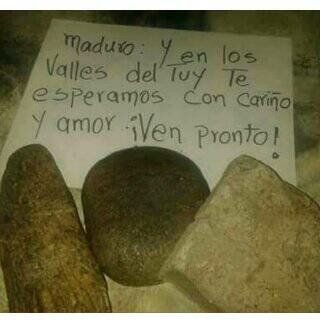 Maduro: Y en los
Valles del Tuy Te
esperamos con cariño
y amor ¡Ven pronto!